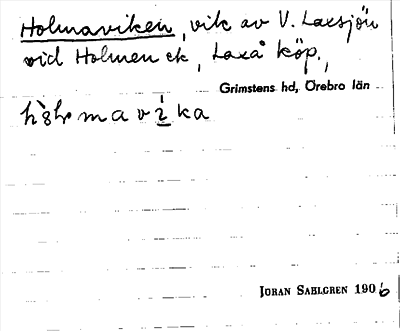 Holmaviken, vik av V. Laxsjön
vid Holmen ek, Laxå köp.,
Grimstens hd, Örebro län
mavika
JÖRAN SAHLGREN 1906